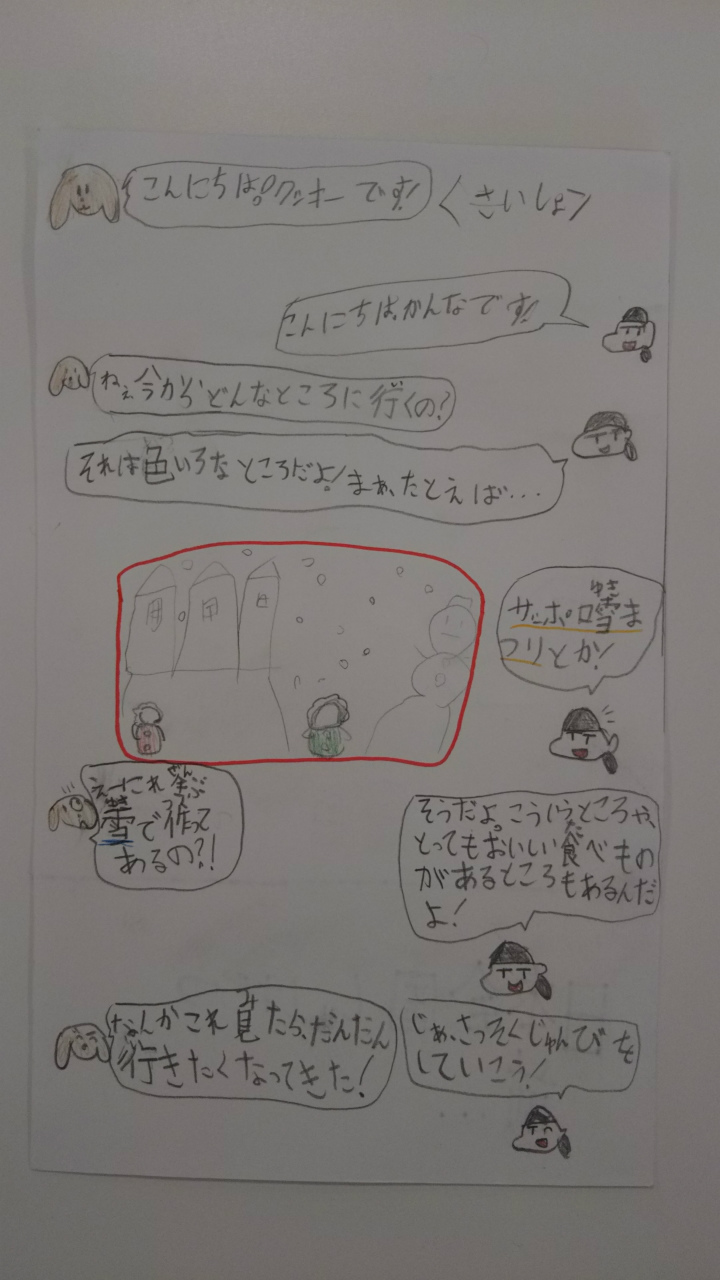 こんにちは。クッキーです!
くさいしょ>
こんにちは、かんなです!
ねぇ今からどんなところに行くの?
それは色いろなところだよ!まぁ、たとえば...
ゆき
サッポロ雪ま
つりとか!
ぜんぶ
えーこれ全ぶ
ゆき つく
雪で作って
あるの?!
そうだよ。こういうところや、
た
とってもおいしい食べもの
があるところもあるんだ
よ!
み
なんかこれ見たら、だんだん
行きたくなってきた!
じゃあ、さっそくじゅんびを
していこう!